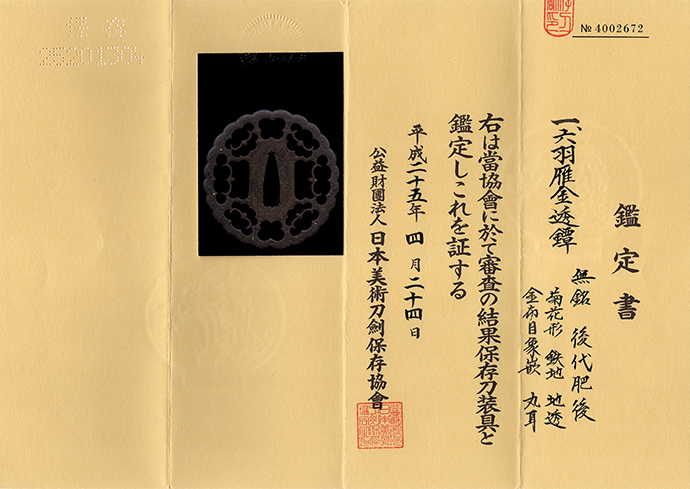 鑑定書
一、六羽雁金透鐔
無銘 後代肥後
菊花形 鉄地 地透
金布目象嵌 丸耳
右は當協會に於て審査の結果保存刀装具と
鑑定しこれを証する
平成二十五年 四月二十四日
公益財團法人 日本美術刀劍保存協會
№ 4002672
保存
25201304